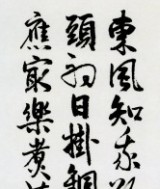 東風知我
頭初日掛銅
應最樂煮